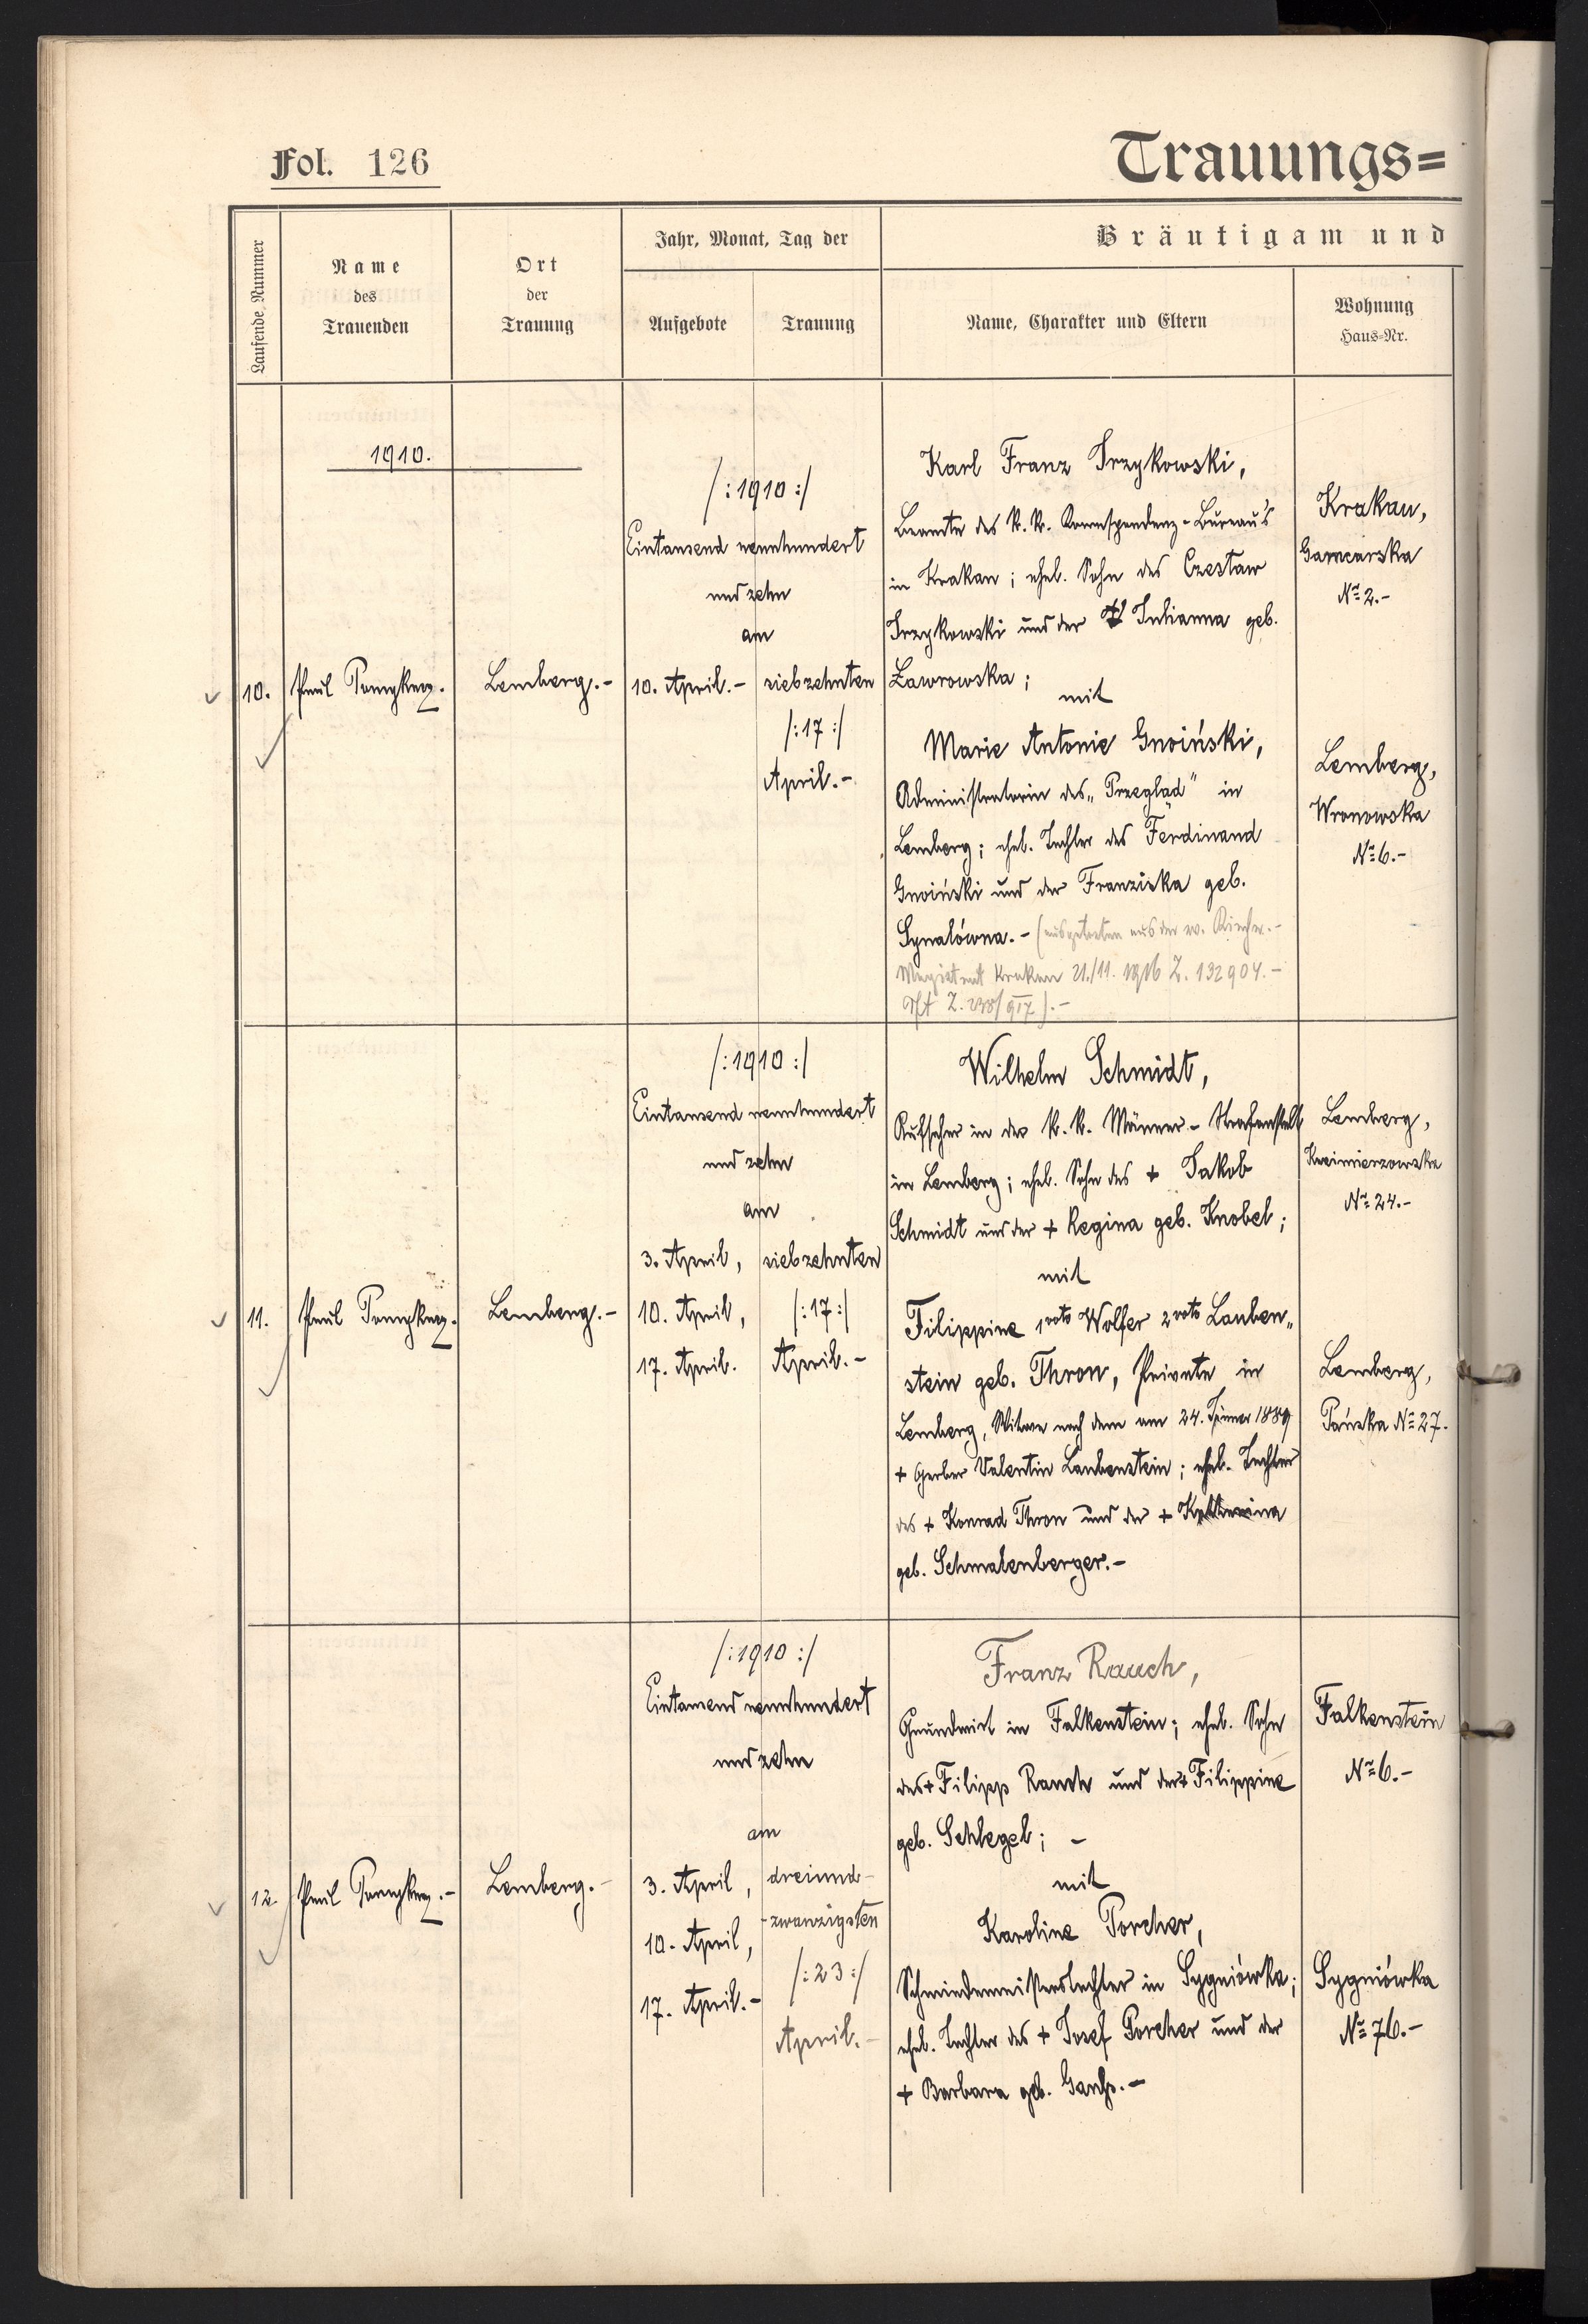 Fol. 126
Trauungs=
Laufende Nummer
Name
des
Trauenden
Ort
der
Trauung
Jahr, Monat, Tag der
Aufgebote
Trauung
Bräutigam und
Name, Charakter und Eltern
Wohnung
Haus=Nr.
1910.
10.
Lemberg.-
/:1910:/
Eintausend neunhundert
und zehn
am
10. April.-
siebzehnten
/:17:/
April.-
Karl Franz Irzykowski,
Beamter des k. k. Korrespondenz-Bureau's
in Krakau; ehel. Sohn des Czesław
Irzykowski und der Julianna geb.
Ławrowska;
mit
Marie Antonie Gnoiński,
Administratorin des „Przegląd" in
Lemberg; ehel. Tochter des Ferdinand
Gnoiński und der Franziska geb.
Synalówna.- (ausgetreten aus der ev. Kirche.-
Magistrat Krakau 21./11. 1916 Z. 132904.-
Z. 238/917).-
Krakau,
Garncarska
No 2.-
Lemberg,
Wronowska
No 6.-
11.
Lemberg.-
/:1910:/
Eintausend neunhundert
und zehn
am
3. April,
10. April,
17. April.
siebzehnten
/:17:/
April.-
Wilhelm Schmidt,
Aufseher in der k. k. Männer-Strafanstalt
in Lemberg; ehel. Sohn des + Jakob
Schmidt und der + Regina geb. Knobel;
mit
Filippine 1voto Wolfer 2voto Lauben„
stein geb. Thron, Private in
Lemberg, Witwe nach dem am 24. Jänner 1889
+ Gerber Valentin Laubenstein; ehel. Tochter
des + Konrad Thron und der + Katharina
geb. Schmalenberger.-
Lemberg,
No 24.-
Lemberg,
Pańska No 27.
12.
Lemberg.-
/:1910:/
Eintausend neunhundert
und zehn
am
3. April,
10. April,
17. April.-
dreiund-
-zwanzigsten
/:23:/
April.-
Franz Rauch,
Grundwirt in Falkenstein; ehel. Sohn
des + Filipp Rauch und der + Filippine
geb. Schlegel; -
mit
Karoline Porcher,
Schmiedemeisterstochter in Sygniówka;
ehel. Tochter des + Josef Porcher und der
+ Barbara geb.
Falkenstein
No 6.-
Sygniówka
No 76.-